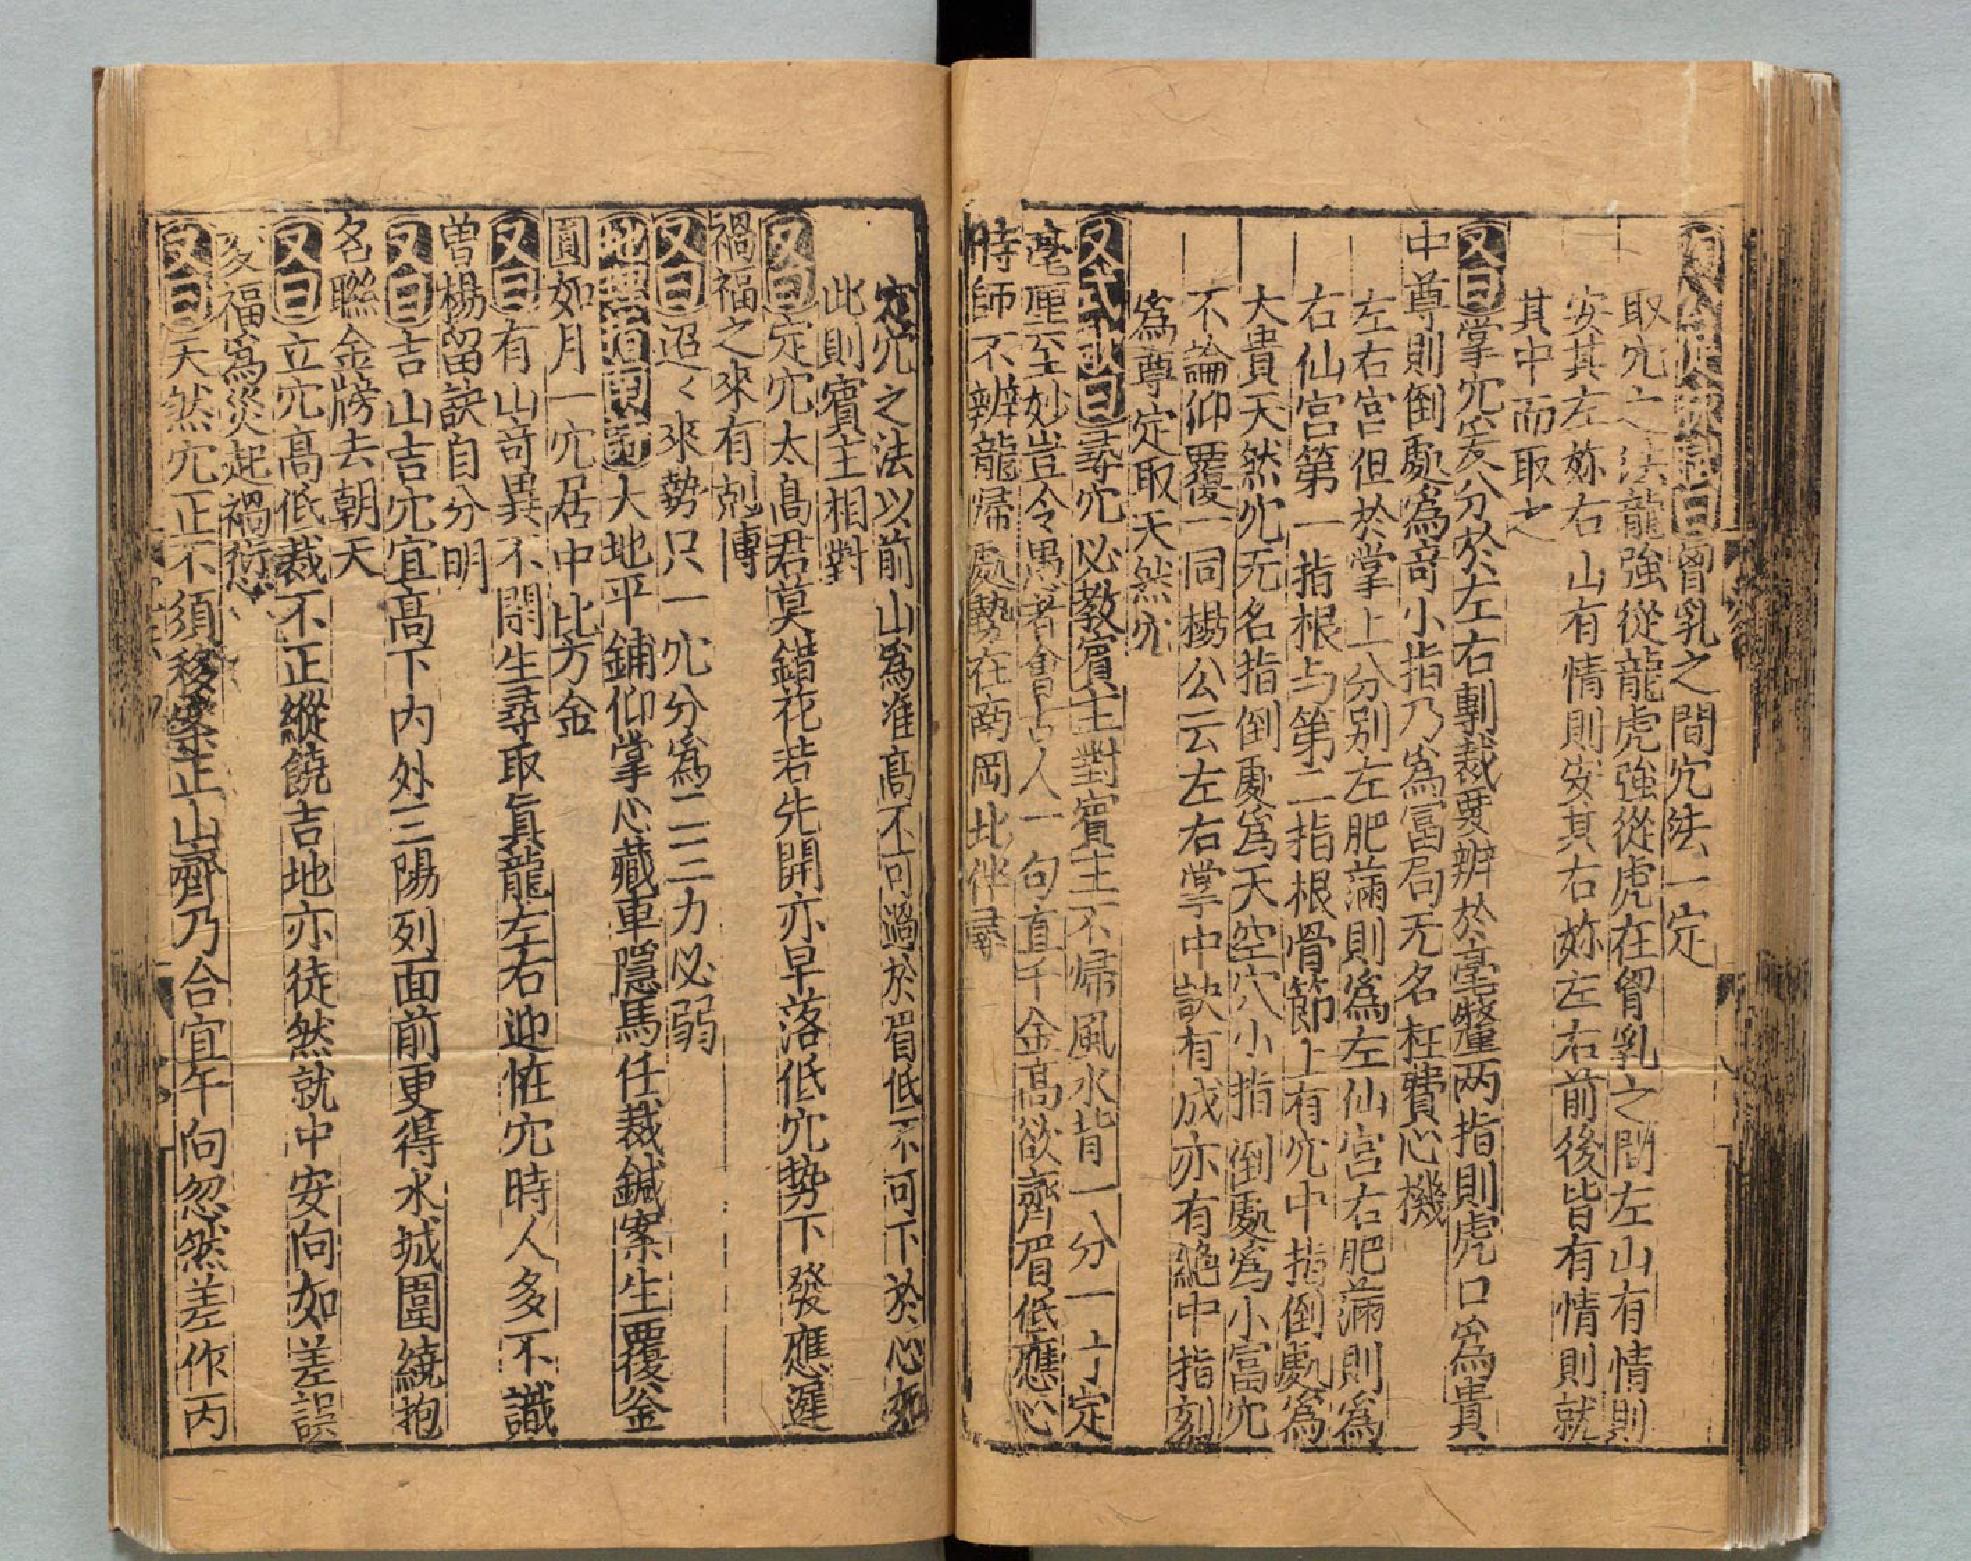 曰胷乳之間穴法一定
取穴之法龍強從龍虎強從虎在胷乳之間左山有情則
安其左妳右山有情則安其右妳左右前後皆有情則就
其中而取之
又曰掌穴安分於左右剸裁要辨於毫釐两指則虎口爲貴
中尊則倒處爲竒小指乃爲富局无名枉費心機
左右宮但於掌上分别左肥滿則爲左仙宮右肥滿則爲
右仙宮第一指根与第二指根骨節上有穴中指倒處爲
大貴天然穴无名指倒處爲天空穴小指倒處爲小富穴
不論仰覆一同楊公云左右掌中訣有成亦有絶中指刻
爲尊定取天然穴
又式歌曰尋穴必教賓主對賓主不歸風水背一分一寸定
毫厘玄妙豈令愚者會古人一句直千金髙欲齊眉低應心
時師不辨龍歸處勢在南岡北伴尋
定穴之法以前山爲准髙不可過於眉低不可下於心如
此則賓主相對
又曰定穴太髙君莫錯花若先開亦早落低穴势下發應遲
禍福之來有剋傳
又曰迢〻來勢只一穴分爲二三力必弱
地理指南萄大地平鋪仰掌心藏車隱馬任裁鍼案生覆釡
圓如月一穴居中比方金
又曰有山竒異不閑生尋取眞龍左右迎恠穴時人多不識
曽楊留訣自分明
又曰吉山吉穴宜髙下内外三陽列面前更得水城圍繞抱
名聮金牓去朝天
又曰立穴髙低裁不正縱饒吉地亦徒然就中安向如差誤
变福爲災起禍愆
又曰天然穴正不須移案正山齊乃合宜午向忽然差作丙